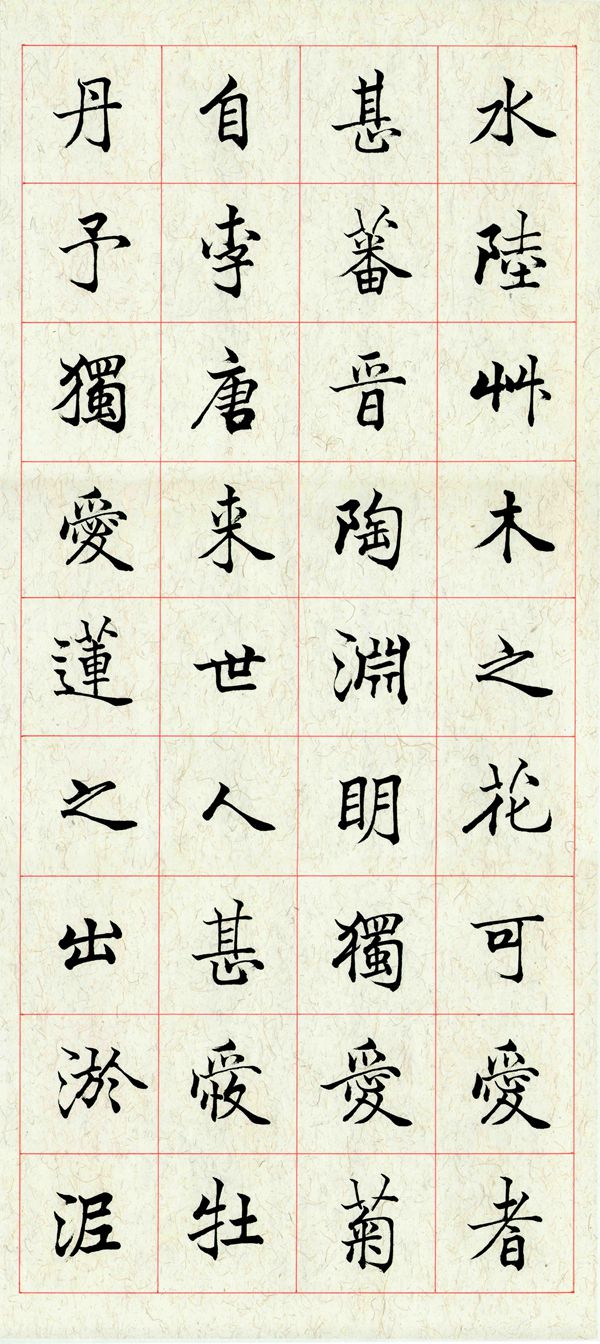 水陸艸木之花可愛者
甚蕃晉陶淵明獨愛菊
自李唐来世人甚愛牡
丹予獨愛蓮之出淤泥